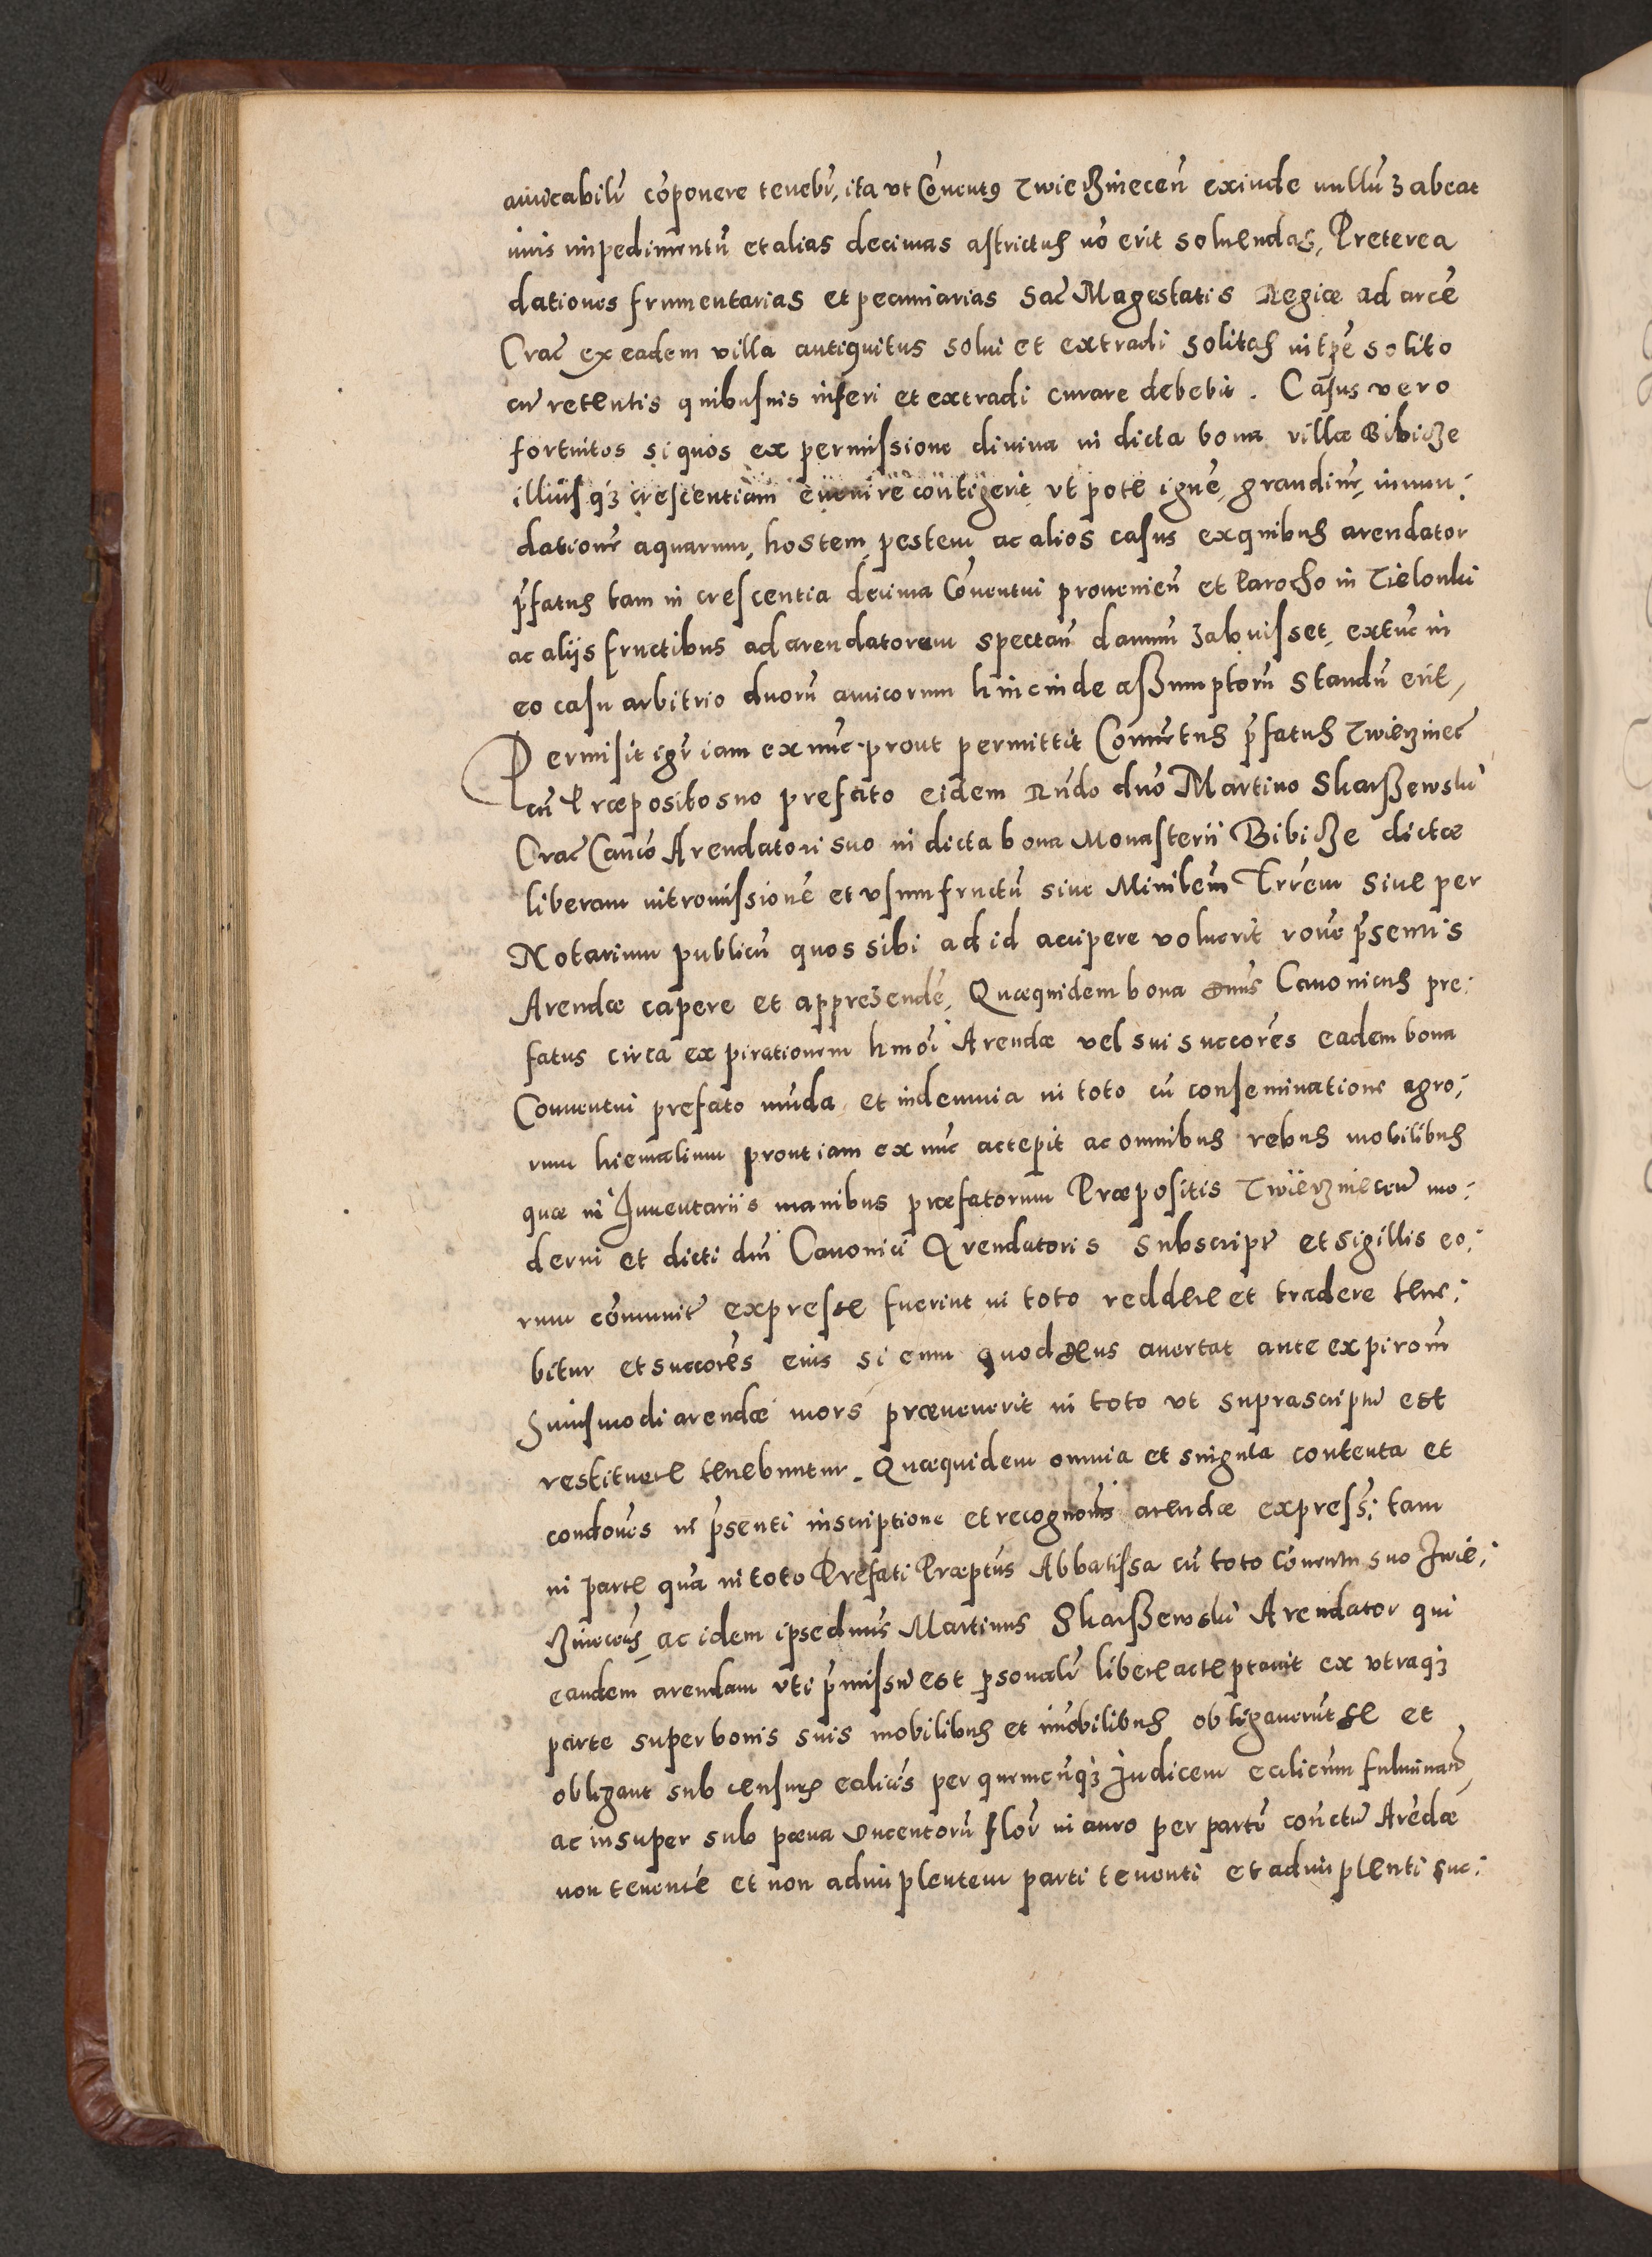 amicabilr̃ cõponere tenebr̃, ita vt Cõuentꝯ Zwierzinecen̄ exinde nullũ habeat
iuris impedimentũ et alias decimas astrictus nõ erit soluendas, Preterea
dationes frumentarias et pecuniarias Sac̃ Magestatis Regiæ ad arcẽ
Crac̃ ex eadem villa antiquitus solui et extradi solitas in tp̃e solito
cũ retentis quibusuis inferi et extradi curare debebit. Casus vero
fortuitos si quos ex permissione diuina in dicta bona villæ Bibicze
illiusq́ꝫ crescentiam euenire contigerit vt pote igne, grandine, inun:
datione aquarum, hostem, pestem ac alios casus ex quibus arendator
p̃fatus tam in crescentia decima Cõuentui prouenien̄ et Parocho in Zielonki
ac aliis fructibus ad arendatorem spectan̄ damnũ habuisset, extũc in
eo casu arbitrio duorũ amicorum hinc inde assumptorũ standũ erit,
Permisit igr̃ iam ex nũc prout permittit Conuentus p̃fatus Zwierzinec̃
cũ Præposito suo prefato eidem Rñdo dño Martino Skarszewski
Crac̃ Canco Arendatori suo in dicta bona Monasterii Bibicze dictæ
liberam intromissionẽ et vsumfructũ siue Minlem̃ Trr̃em siue per
Notarium publicũ quos sibi ad id accipere voluerit rõne p̃sentis
Arendæ capere et apprehendẽ, Quæquidem bona dñus Canonicus pre:
fatus circa expirationem hmõi Arendæ vel sui succores eadem bona
Conuentui prefato munda et indemnia in toto cũ conseminatione agro:
rum hiemalium prout iam ex nũc accepit ac omnibus rebus mobilibus
quæ in Inuentariis manibus præfatorum Præpositis Zwierzinecen̄ mo:
derni et dicti dñi Canonici Arendatoris subscript̃ et sigillis eo:
rum cõmunit̃ expresse fuerint in toto reddere et tradere tene:
bitur et succores eius si eum quod Deus auertat ante expirõm
huiusmodi arendæ mors præuenerit in toto vt suprascriptũ est
restituere tenebuntur. Quæquidem omnia et singula contenta et
condones in p̃senti inscriptione et recognõns arendæ express: tam
in parte quã in toto Prefati Præptus Abbatissa cũ toto Cõuentu suo Zwie:
rzinecen̄, ac idem ipse dñus Martinus Skarszewski Arendator qui
eandem arendam vti p̃missũ est psonalr̃ libere acceptauit ex vtraqꝫ
parte super bonis suis mobilibus et imobilibus obligauerũt se et
obligant sub censuris eccliciis per quemcũqꝫ Iudicem eccliciũm fulminan̄,
ac insuper sub poena Ducentorũ flor̃ in auro per partẽ contrã Arẽdæ
non tenentẽ et non adimplentem parti tenenti et adimplenti suc: